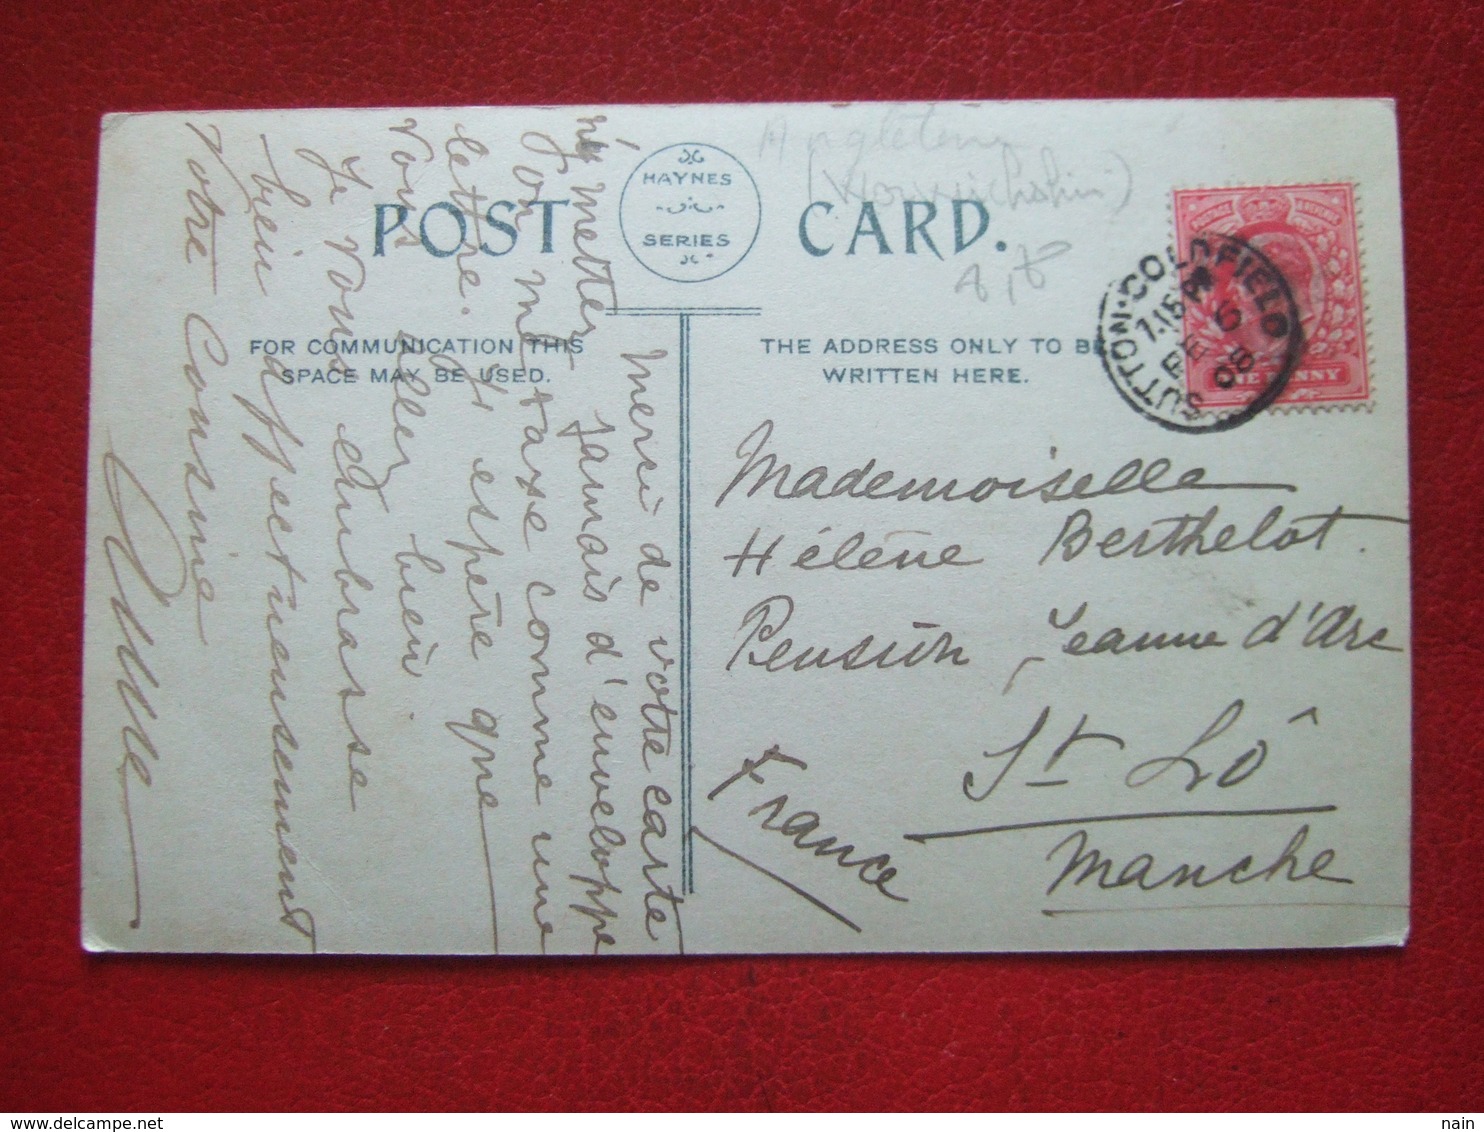 POST CARD.
HAYNES
SERIES
FOR COMMUNICATION THIS
SPACE MAY BE USED.
THE ADDRESS ONLY TO BE
WRITTEN HERE.
Angleterre
SUTTON·COLDFIELD
7.15 PM
FE 6
08
ONE PENNY
Mademoiselle
Hélène Berthelot.
Pension Jeanne d'Arc
St Lô
Manche
France
Merci de votre carte
n'y mettez jamais d'enveloppe
l'on me taxe comme une
lettre. J'espère que
vous allez bien.
Je vous embrasse
bien affectueusement
Votre Cousine
nain